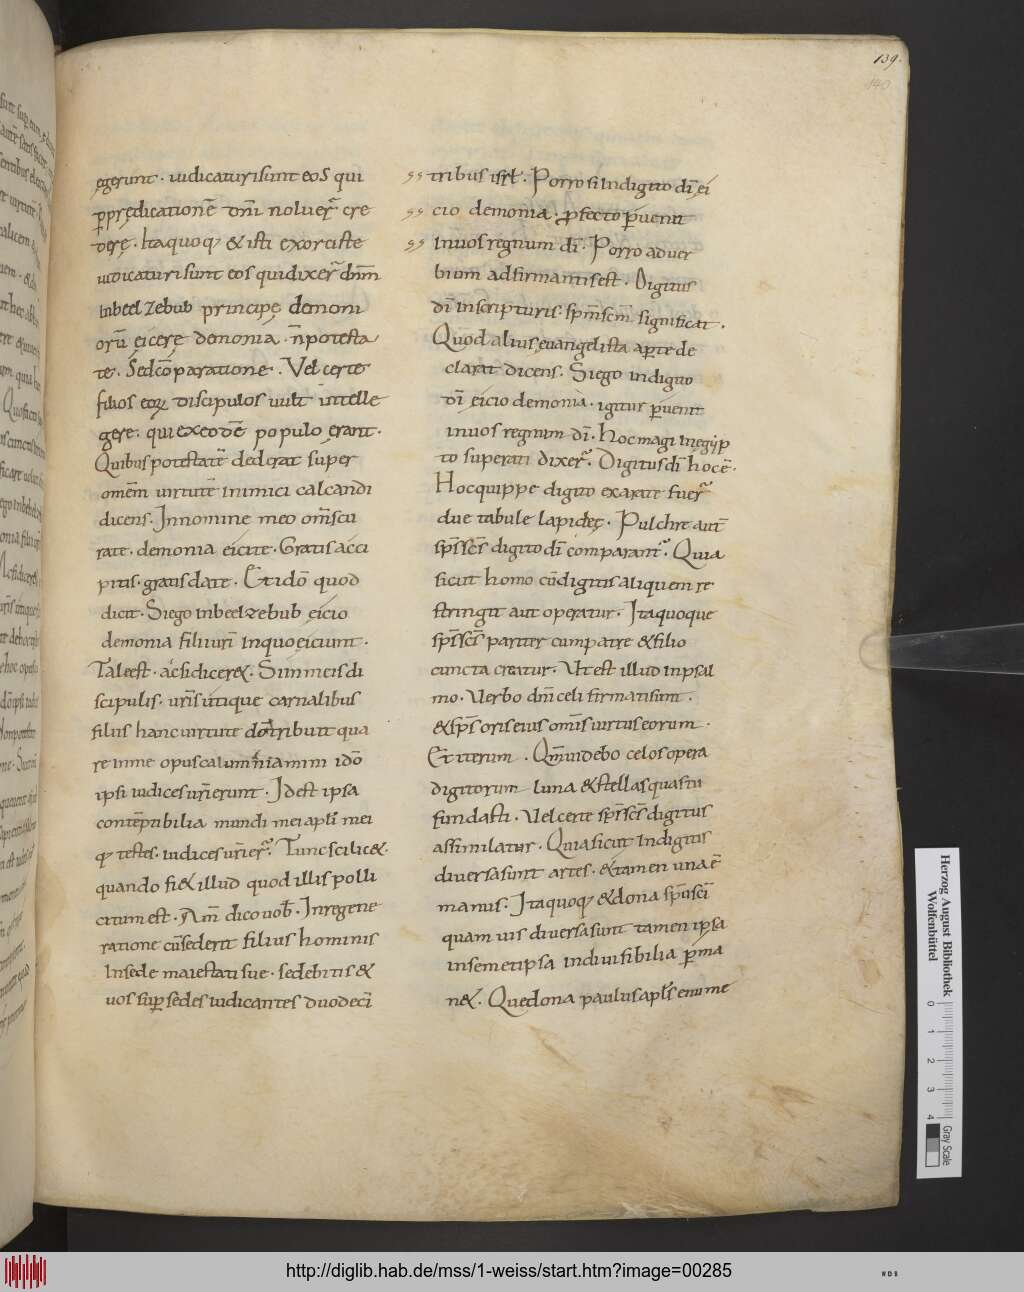 139.
140
egerunt · iudicaturi sunt eos qui
p̱ prędicationē dn̄i noluer̄ cre
derę · Itaquoq; & isti exorciste
iudicaturi sunt eos qui dixer̄ dn̄m
in beelzebub principę demoni
orū eicerę demonia · n̄ potesta
te · Sed cōparatione · Vel certe
filios eoꝝ discipulos uult intelle
gere · qui exeodē populo erant ·
Quibus potestatē dederat super
omēm uirtutē inimici calcandi
dicens · In nomine meo om̄s cu
rate · demonia eicite · Gratis acci
pitis · gratis date · Et idō quod
dicit · Si ego in beelzebub eicio
demonia filii ur̄i in quo eiciunt ·
Tale est · ac si dicer& · Si in meis di
scipulis · ur̄is utique carnalibus
filiis hanc uirtute d̄s tribuit qua
re in me opus calumniamini idō
ipsi iudices ur̄i erunt · Id est ipsa
contēptibilia mundi mei apl̄i mei
q; testes · iudices ur̄i er̄ · Tunc scilic& ·
quando fi& illud quod illis polli
citum est · Am̄ dico uob̄ · In regene
ratione cū sederit filius hominis
In sede maiestati sue · sedebitis &
uos suꝑ sedes iudicantes duodecī
tribus isrl̄ · Porro si In digito dī ei
cio demonia · ꝓfecto ꝑuenit
In uos regnum dī · Porro aduer
bium adfirmantis est · Digitus
dī in scripturis · sp̄m sc̄m significat ·
Quod alius euangelista aperte de
clarat dicens · Si ego in digito
dī eicio demonia · igitur ꝑuenit
in uos regnum dī · Hoc magi in egip
to superati dixer̄ · Digitus dī hoc ē ·
Hoc quippe digito exarate fuer̄
due tabule lapideę · Pulchre aut̄
sp̄s sc̄s digito dī comparant̄ · Quia
sicut homo cū digitis aliquem re
stringit aut operatur · Itaquoque
sp̄s sc̄s pariter cum patre & filio
cuncta creatur · Vt est illud in psal
mo · Verbo dn̄i celi firmati sunt ·
& sp̄s oris eius om̄is uirtus eorum ·
Et iterum · Qm̄ uidebo celos opera
digitorum luna & stellas quas tu
fundasti · Vel certe sp̄s sc̄s digitus
assimilatur · Quia sicut In digitis
diuersa sunt artes · & tamen una ē
manus · Itaquoq; & dona sp̄us sc̄i
quam uis diuersa sunt tamen ipsa
in semetipsa indiuisibilia ꝑma
n& · Quę dona paulus apl̄s enume
Herzog August Bibliothek
Wolfenbüttel
0 1 2 3 4
Gray Scale
http://diglib.hab.de/mss/1-weiss/start.htm?image=00285